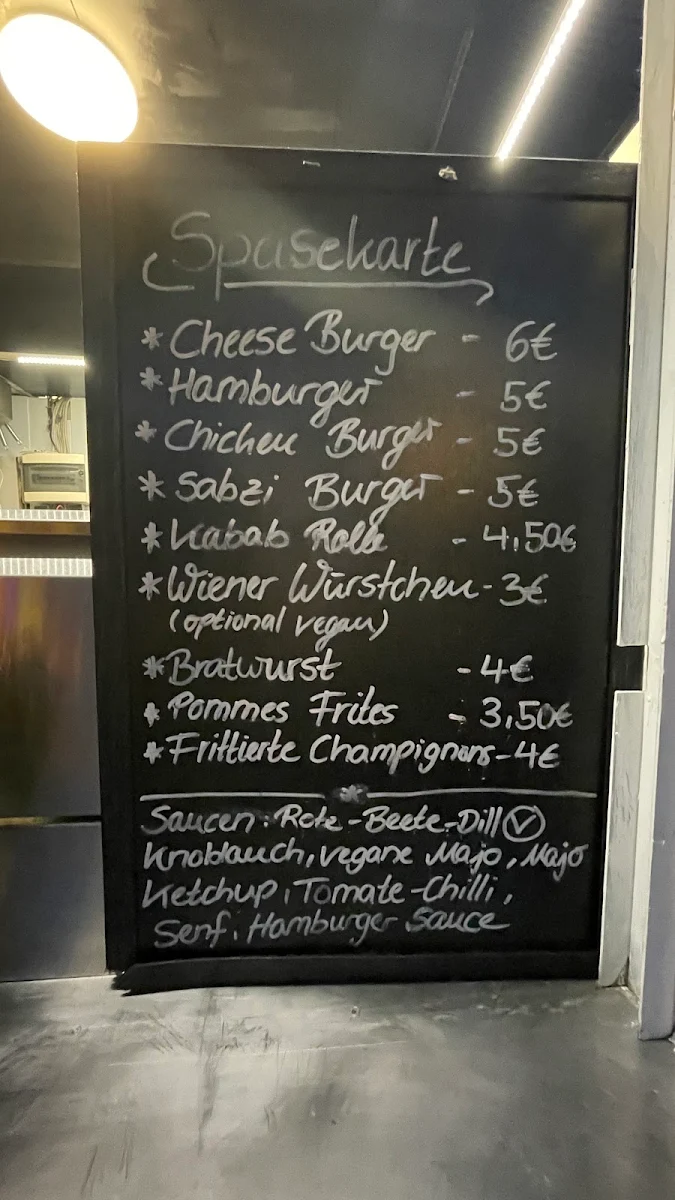 Speisekarte
* Cheese Burger - 6€
* Hamburger - 5€
* Chicken Burger - 5€
* Sabzi Burger - 5€
* Kabab Rolle - 4,50€
* Wiener Würstchen - 3€
(optional vegan)
* Bratwurst - 4€
* Pommes Frites - 3,50€
* Frittierte Champignons - 4€
Saucen: Rote-Beete-Dill Ⓥ
Knoblauch, vegane Majo, Majo
Ketchup, Tomate-Chilli,
Senf, Hamburger Sauce